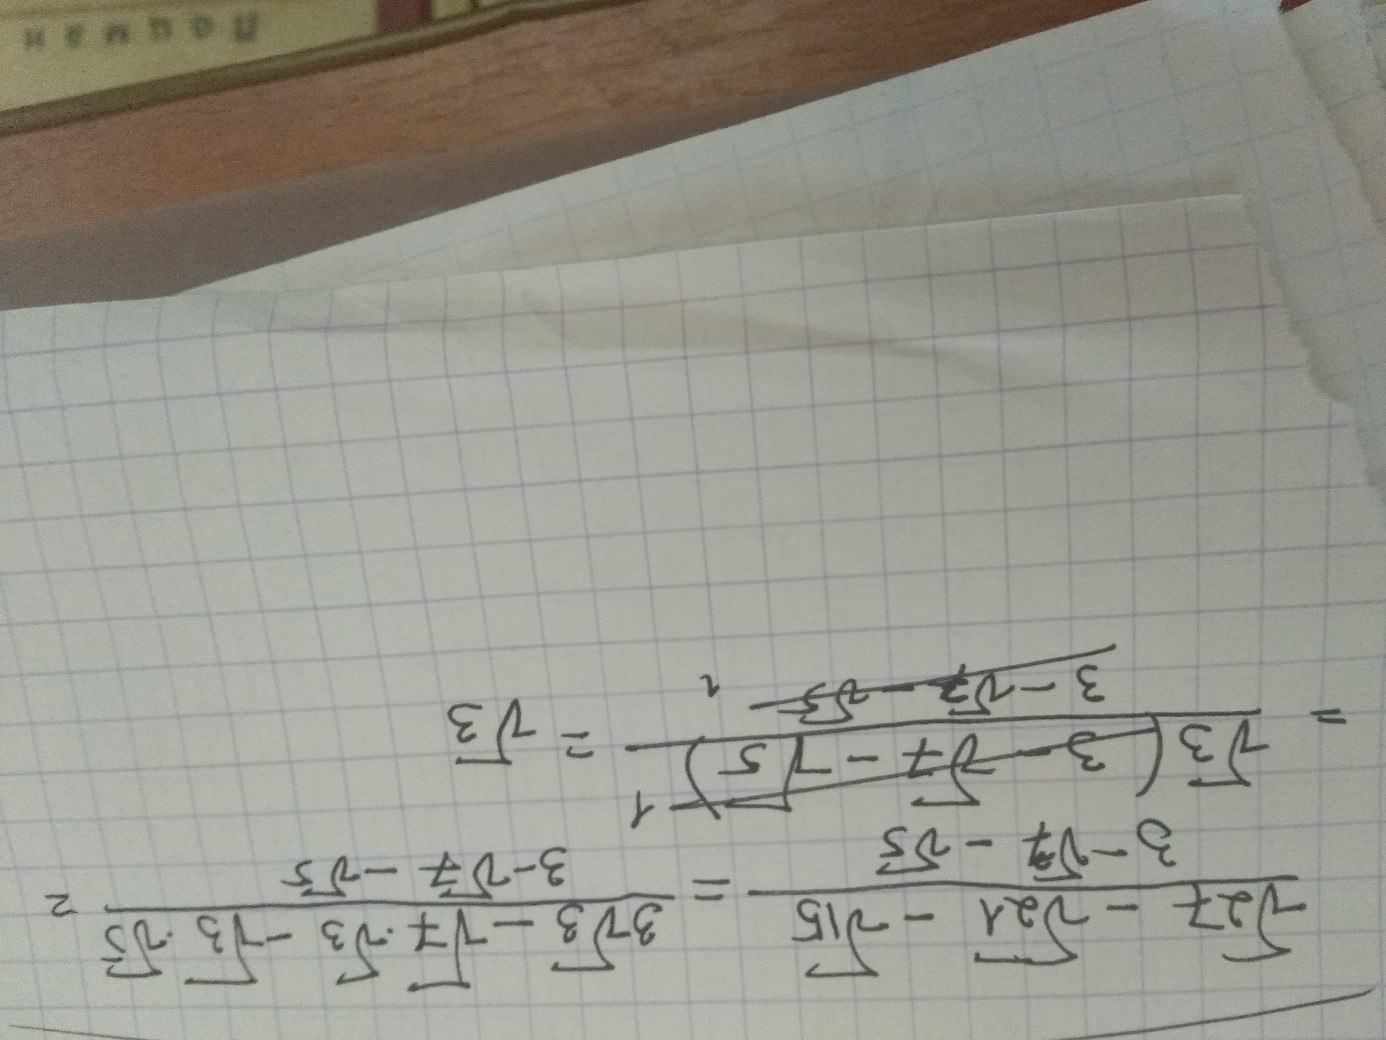 (√27 - √21 - √15)/(3 - √7 - √5) = (3√3 - √7·√3 - √3·√5)/(3 - √7 - √5) =
= √3(3 - √7 - √5) 1/(3 - √7 - √5) 1 = √3
Лоцман